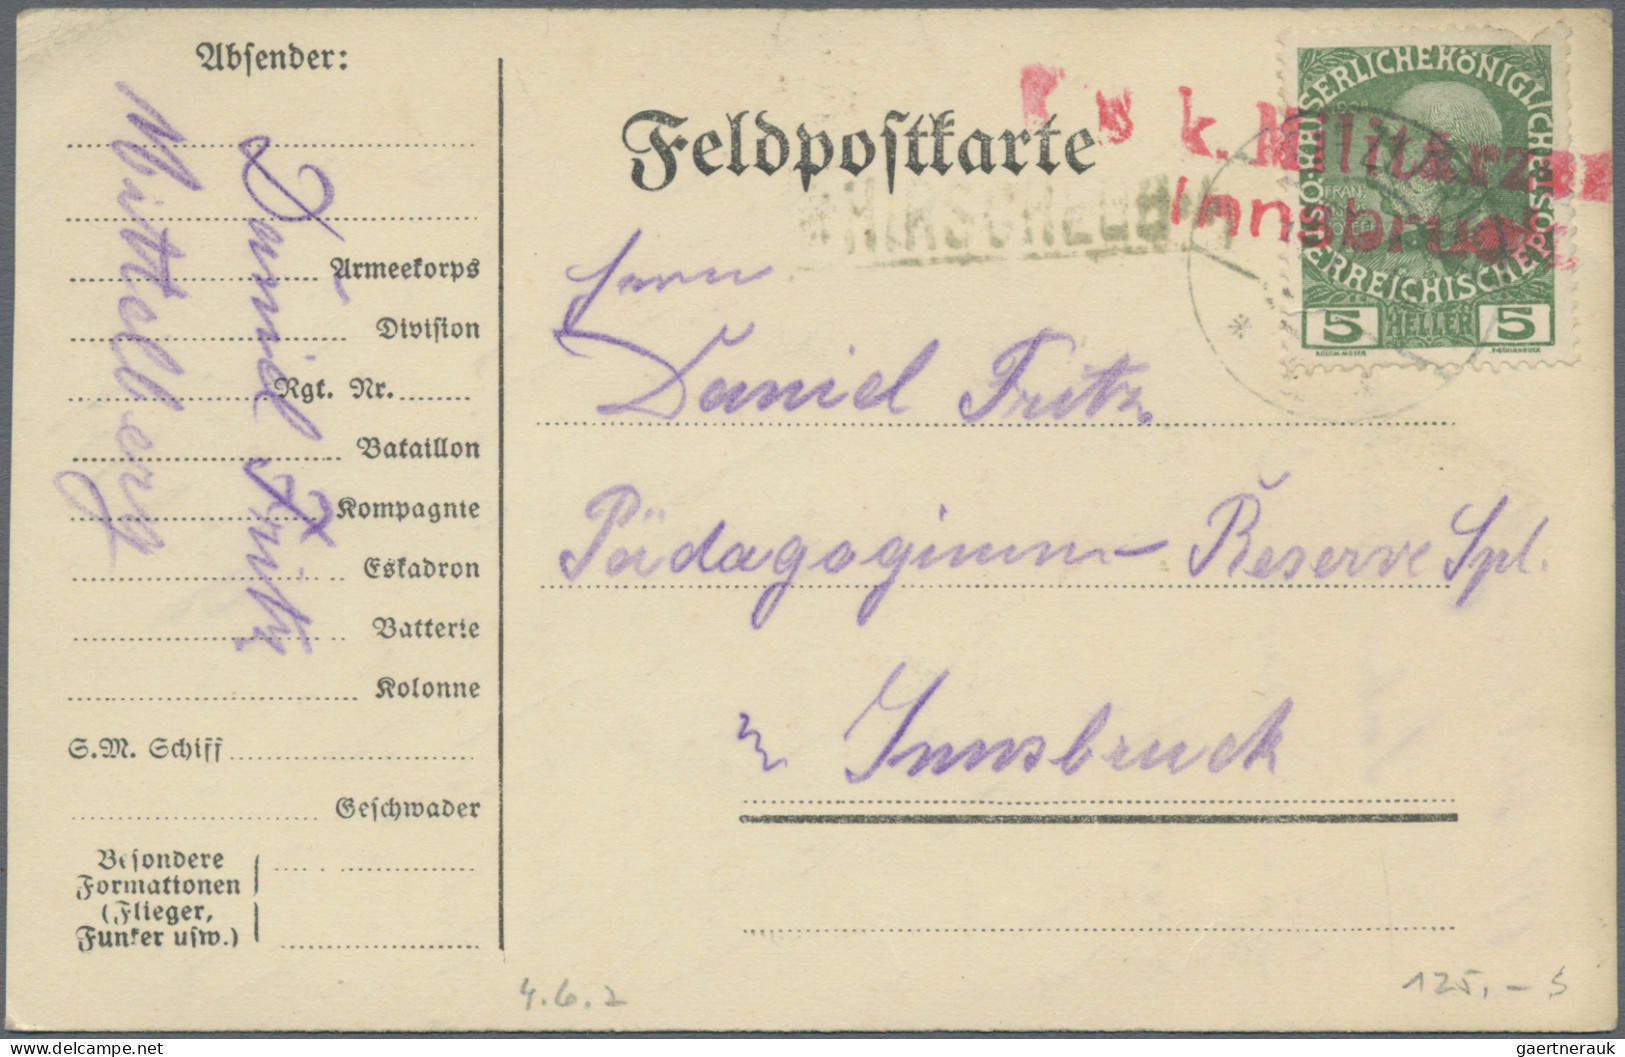 Absender:
Daniel Fritz
Mittelberg
Armeekorps
Division
Rgt. Nr.
Bataillon
Kompagnie
Eskadron
Batterie
Kolonne
S.M. Schiff
Geschwader
Besondere
Formationen
(Flieger,
Funker usw.)
Feldpostkarte
K u k. Militärz
Innsbruck
HIRSCHEGG
KAISERLICHEKÖNIGLICHE
ÖSTERREICHISCHE POST
5 HELLER 5
Herrn
Daniel Fritz
Pädagogium - Reserve Spl.
in Innsbruck
4.6.2
125,- S
delcampe.net
gaertnerauk